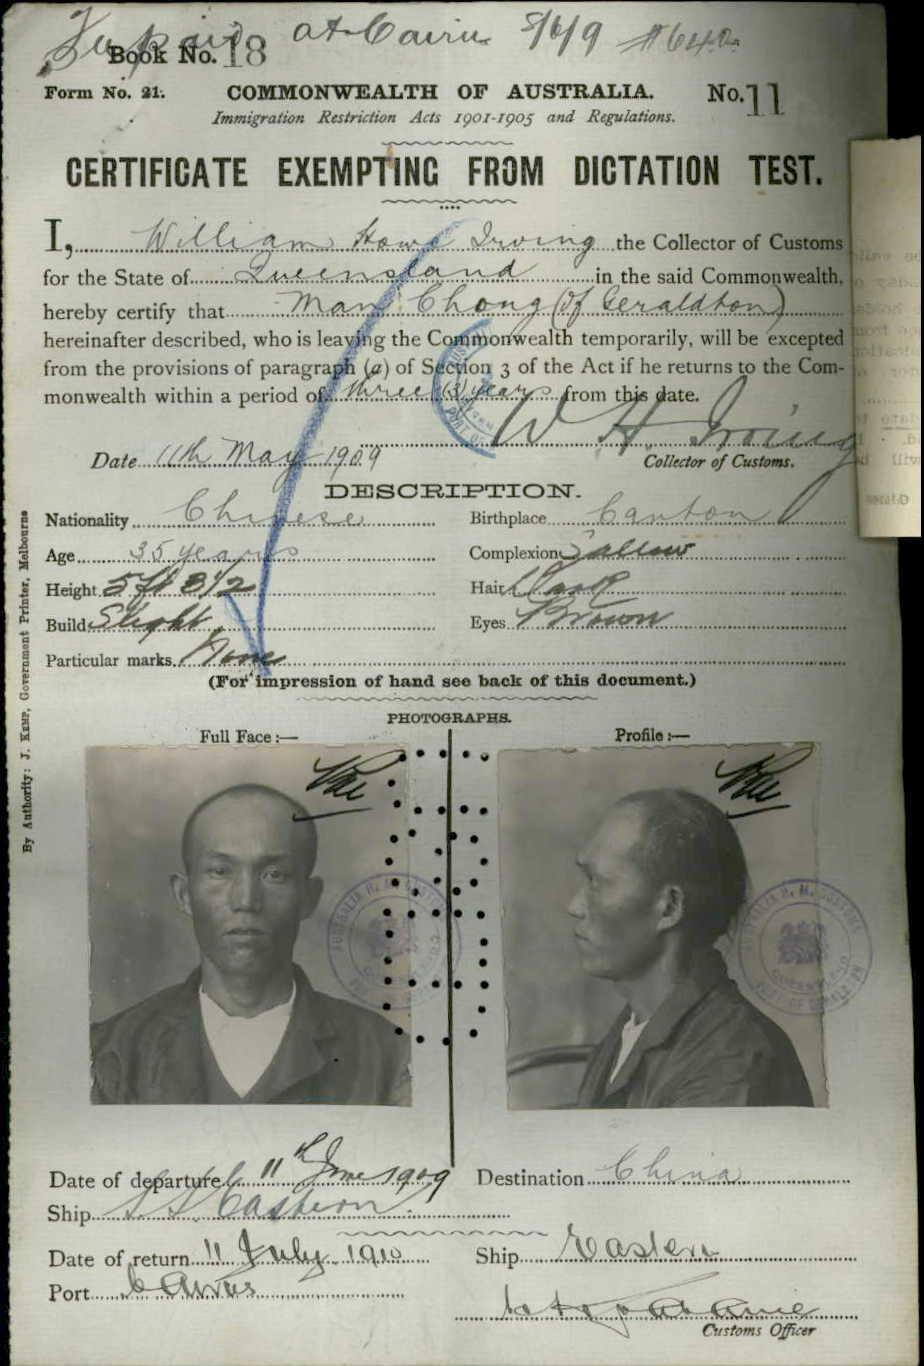 at Cairns 8/6/9
Book No. 18
Form No. 21. COMMONWEALTH OF AUSTRALIA. No. 11
Immigration Restriction Acts 1901-1905 and Regulations.
CERTIFICATE EXEMPTING FROM DICTATION TEST.
I, William Irving the Collector of Customs
for the State of Queensland in the said Commonwealth,
hereby certify that Man Chong (of Geraldton)
hereinafter described, who is leaving the Commonwealth temporarily, will be excepted
from the provisions of paragraph (a) of Section 3 of the Act if he returns to the Com-
monwealth within a period of three (3) years from this date.
W H Irving
Date 11th May 1909 Collector of Customs.
DESCRIPTION.
Nationality Chinese Birthplace Canton
Age 35 years Complexion Sallow
Height 5ft 8 1/2 Hair Dark
Build Slight Eyes Brown
Particular marks None
(For impression of hand see back of this document.)
PHOTOGRAPHS.
Full Face :— Profile :—
Date of departure 11th June 1909 Destination China
Ship S.S. Eastern
Date of return 11 July 1910 Ship Eastern
Port Cairns
Customs Officer
By Authority: J. KEMP, Government Printer, Melbourne